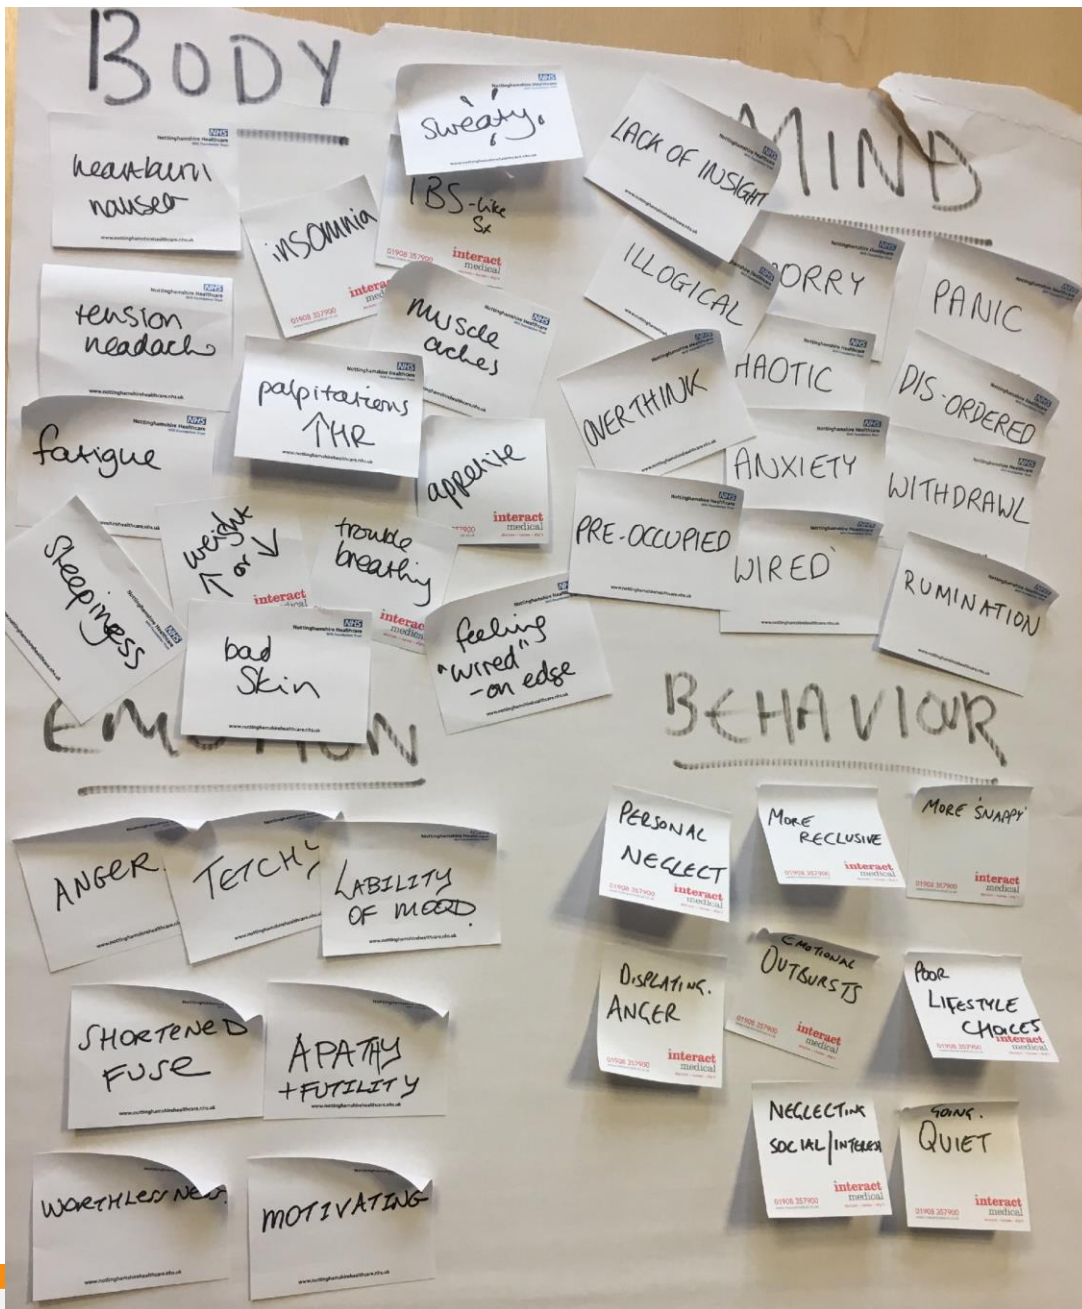 BODY
heartburn
nausea
insomnia
sweaty
IBS-like
Sx
01908 357900
interact
medical
tension
headache
muscle
aches
palpitations
↑HR
fatigue
appetite
interact
medical
sleepiness
weight
↑ or ↓
trouble
breathing
bad
skin
feeling
"wired"
-on edge
MIND
LACK OF INSIGHT
ILLOGICAL
ORRY
PANIC
HAOTIC
DIS-ORDERED
OVERTHINK
ANXIETY
WITHDRAWL
PRE-OCCUPIED
WIRED
RUMINATION
EMOTION
ANGER
TETCHY
LABILITY
OF MOOD
SHORTENED
FUSE
APATHY
+ FUTILITY
WORTHLESSNESS
MOTIVATING
BEHAVIOUR
PERSONAL
NEGLECT
01908 357900
interact
medical
MORE
RECLUSIVE
01908 357900
interact
medical
MORE 'SNAPPY'
01908 357900
interact
medical
DISPLAYING.
ANGER
01908 357900
interact
medical
EMOTIONAL
OUTBURSTS
01908 357900
interact
medical
POOR
LIFESTYLE
CHOICES
01908 357900
interact
medical
NEGLECTING
SOCIAL/INTERESt
01908 357900
interact
medical
GOING.
QUIET
01908 357900
interact
medical